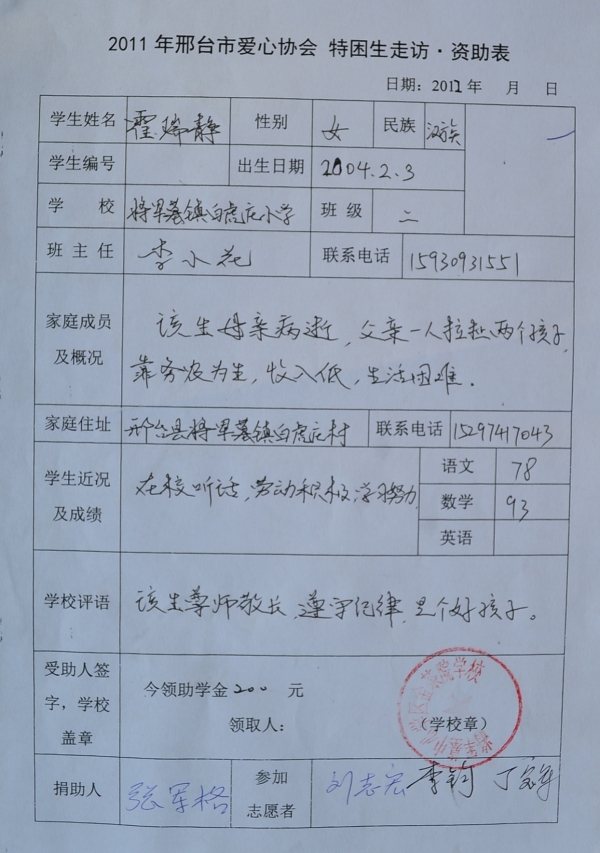 2011年邢台市爱心协会 特困生走访·资助表
日期：2012年 月 日
学生姓名 霍瑞静 性别 女 民族 汉族
学生编号 出生日期 2004.2.3
学校 将军墓镇白虎庄小学 班级 二
班主任 李小花 联系电话 15930931551
家庭成员及概况
该生母亲病逝，父亲一人拉扯两个孩子，
靠务农为生，收入低，生活困难．
家庭住址 邢台县将军墓镇白虎庄村 联系电话 15297417043
学生近况及成绩
在校听话，劳动积极，学习努力
语文 78
数学 93
英语
学校评语 该生尊师敬长，遵守纪律，是个好孩子。
受助人签字，学校盖章
今领助学金200元
领取人： （学校章）
捐助人 张军格 参加志愿者 刘志宏 李钧